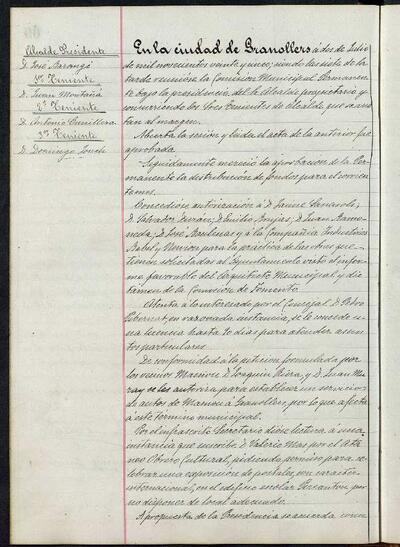 Alcalde Presidente
D. José Barangé
1er Teniente
D. Juan Montañá
2º Teniente
D. Antonio Cunillera
3er Teniente
D. Domingo Jonch
En la ciudad de Granollers a dos de Julio
de mil novecientos veinte y cinco; siendo las siete de la
tarde reunióse la Comisión Municipal Permanen-
te bajo la presidencia del Sr. Alcalde propietario y
concurriendo los tres Tenientes de Alcalde que se ano-
tan al margen.
Abierta la sesión y leída el acta de la anterior fue
aprobada.
Seguidamente mereció la aprobación de la Per-
manente la distribución de fondos para el corriente
mes.
Concedióse autorización a D. Jaime
D. Salvador D. Emilio D. Juan
D. José y a la Compañía Industrias
Babel y Nervion para la práctica de las obras que
tienen solicitadas al Ayuntamiento visto el infor-
me favorable del Arquitecto Municipal y dic-
tamen de la Comisión de Fomento.
Atenta a lo interesado por el Concejal D. Pedro
en razonada instancia, se le concede u-
na licencia hasta 40 días para atender asun-
tos particulares.
De conformidad a la petición formulada por
los vecinos D. Joaquin Riera, y D. Juan
se les autoriza para establecer un servicio
de autos de a Granollers, por lo que afecta
a este término municipal.
Por el infrascrito Secretario dióse lectura a una
instancia que suscribe D. Valerio Mas por el Ate-
neo Obrero Cultural, pidiendo permiso para ce-
lebrar una exposición de postales, con carácter
internacional, en el edificio escolar Pereanton, por
no disponer de local adecuado.
A propuesta de la Presidencia se acuerda